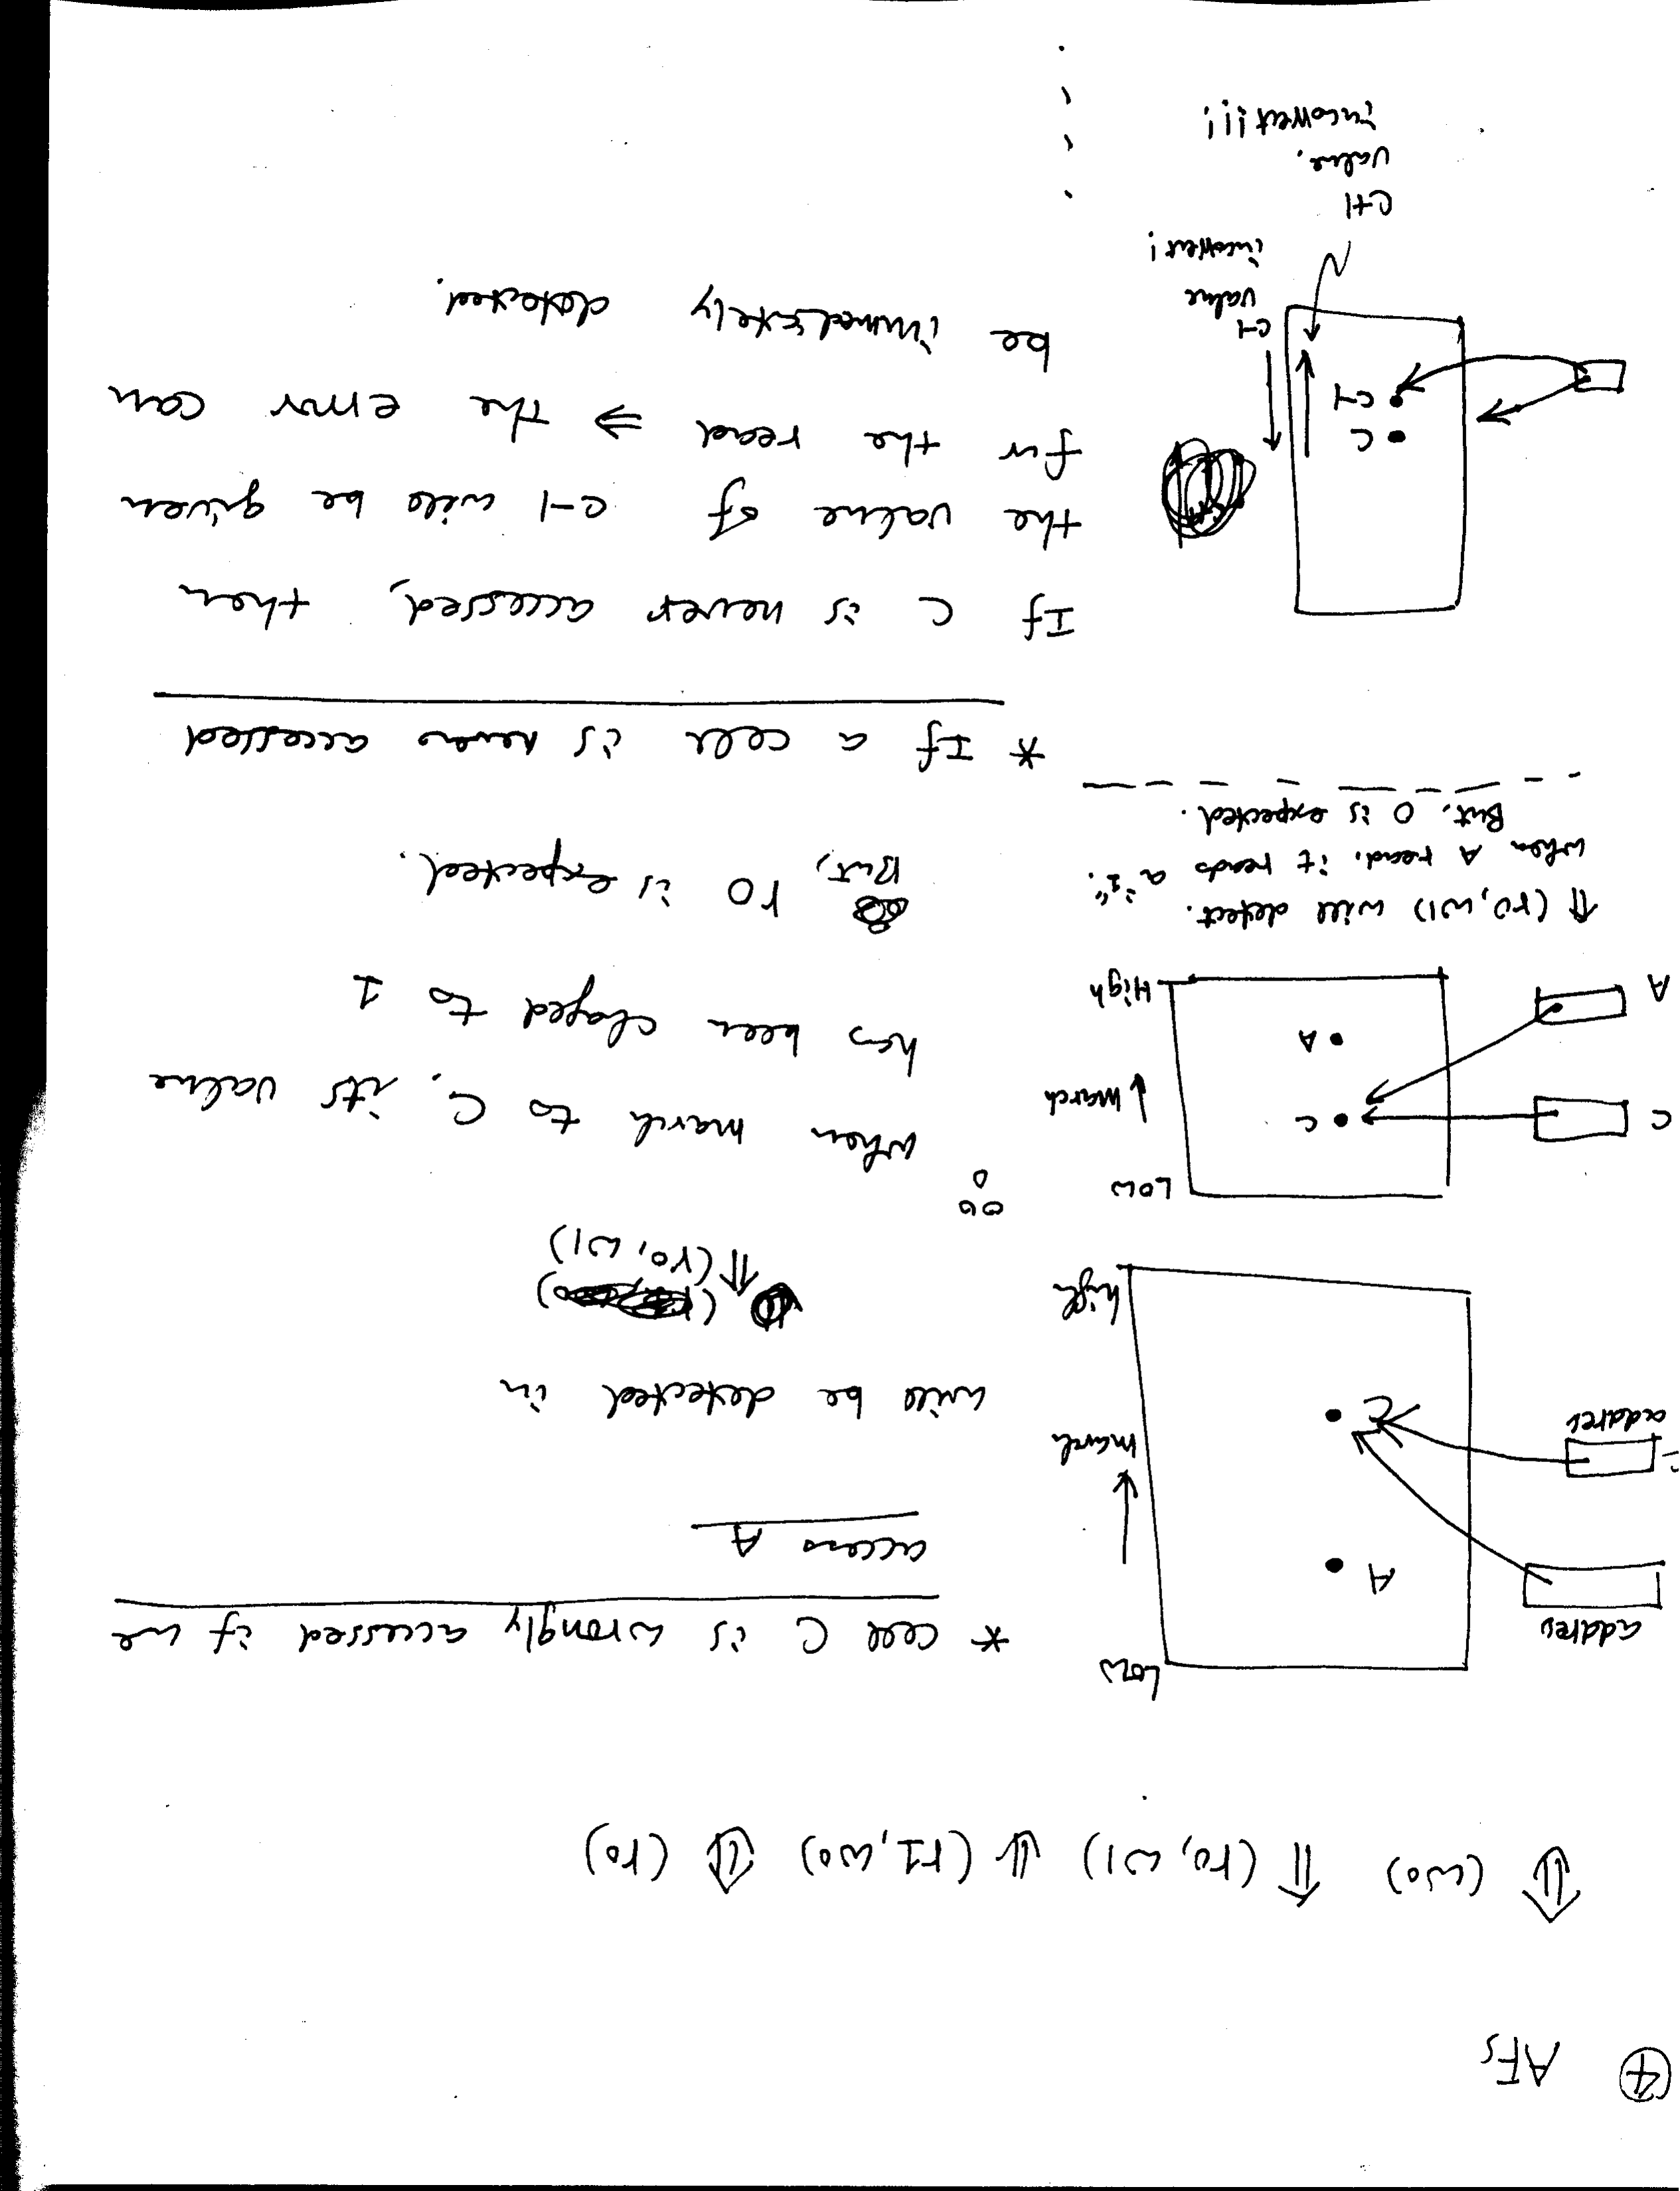 ④ AFs
⇕ (w0) ⇑ (r0, w1) ⇓ (r1, w0) ⇕ (r0)
addres
Low
A
march
addres
C
high
* cell C is wrongly accessed if we
access A
will be detected in
⇑ (r0, w1)
when march to C, its value
has been chaged to 1
But, r0 is expected.
Low
C
C
march
A
A
High
⇑ (r0, w1) will detect.
when A read. it reads a "1".
But. 0 is expected.
* If a cell is never accessed
If C is never accessed, then
the value of c-1 will be given
for the read ⇒ the error can
be immediately detected.
C
C-1
C-1
value
incorrect!
C+1
value.
incorrect!!!